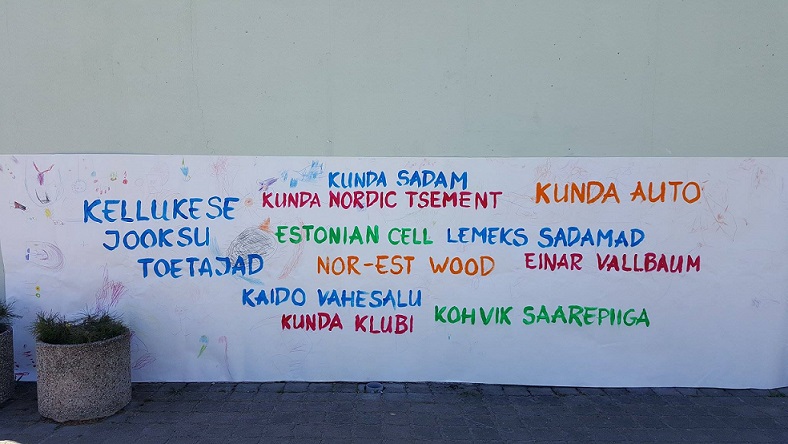 KELLUKESE
JOOKSU
TOETAJAD
KUNDA SADAM
KUNDA NORDIC TSEMENT
KUNDA AUTO
ESTONIAN CELL
LEMEKS SADAMAD
NOR-EST WOOD
EINAR VALLBAUM
KAIDO VAHESALU
KUNDA KLUBI
KOHVIK SAAREPIIGA